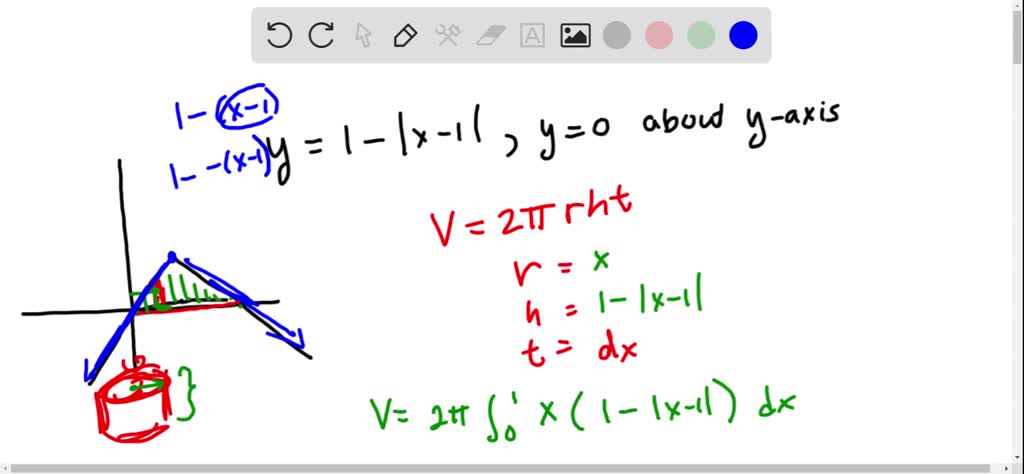 1-(x-1)
1--(x-1)
y = 1-|x-1|, y=0 about y-axis
V = 2π rht
r = x
h = 1-|x-1|
t = dx
V= 2π ∫₀¹ x (1-|x-1|) dx